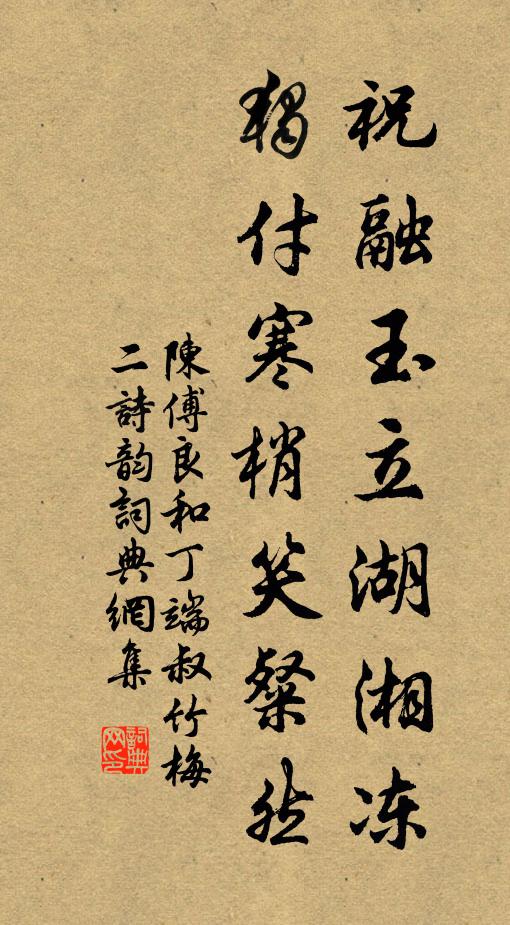 祝融玉立湖湘冻
独付寒梢笑粲然
陳傅良和丁端叔竹梅
二詩韵詞典網集
詞典网印